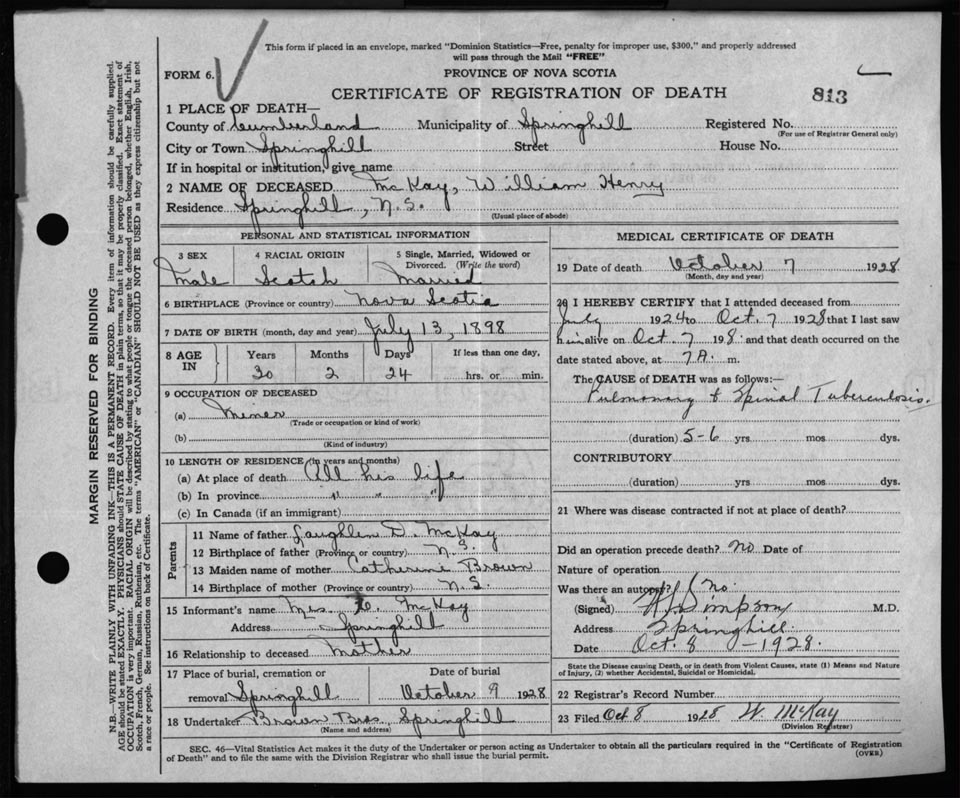 This form if placed in an envelope, marked "Dominion Statistics—Free, penalty for improper use, $300," and properly addressed
will pass through the Mail "FREE"
FORM 6.
PROVINCE OF NOVA SCOTIA
CERTIFICATE OF REGISTRATION OF DEATH
813
1 PLACE OF DEATH—
County of Cumberland Municipality of Springhill Registered No.
(For use of Registrar General only)
City or Town Springhill Street House No.
If in hospital or institution, give name
2 NAME OF DECEASED McKay, William Henry
Residence Springhill, N.S.
(Usual place of abode)
PERSONAL AND STATISTICAL INFORMATION
3 SEX 4 RACIAL ORIGIN 5 Single, Married, Widowed or
Divorced. (Write the word)
Male Scotch Married
6 BIRTHPLACE (Province or country) Nova Scotia
7 DATE OF BIRTH (month, day and year) July 13, 1898
8 AGE IN Years Months Days If less than one day,
30 2 24 hrs. or min.
9 OCCUPATION OF DECEASED
(a) Miner
(Trade or occupation or kind of work)
(b)
(Kind of industry)
10 LENGTH OF RESIDENCE (in years and months)
(a) At place of death All his life
(b) In province " " "
(c) In Canada (if an immigrant)
Parents
11 Name of father Laughlen D. McKay
12 Birthplace of father (Province or country) N.S.
13 Maiden name of mother Catherine Brown
14 Birthplace of mother (Province or country) N.S.
15 Informant's name Mrs. McKay
Address Springhill
16 Relationship to deceased Mother
17 Place of burial, cremation or Date of burial
removal Springhill October 9 1928
18 Undertaker Brown Bros, Springhill
(Name and address)
MEDICAL CERTIFICATE OF DEATH
19 Date of death October 7 1928
(Month, day and year)
20 I HEREBY CERTIFY that I attended deceased from
July 1924 to Oct. 7 1928 that I last saw
him alive on Oct. 7 1928 and that death occurred on the
date stated above, at 7 A. m.
The CAUSE of DEATH was as follows:—
Pulmonary & Spinal Tuberculosis.
(duration) 5-6 yrs. mos dys.
CONTRIBUTORY
(duration) yrs. mos. dys.
21 Where was disease contracted if not at place of death?
Did an operation precede death? No Date of
Nature of operation
Was there an autopsy? No
(Signed) Simpson M.D.
Address Springhill.
Date Oct. 8 - 1928.
State the Disease causing Death, or in death from Violent Causes, state (1) Means and Nature
of Injury, (2) whether Accidental, Suicidal or Homicidal.
22 Registrar's Record Number
23 Filed Oct 8 1928 W. McKay
(Division Registrar)
SEC. 46—Vital Statistics Act makes it the duty of the Undertaker or person acting as Undertaker to obtain all the particulars required in the "Certificate of Registration
of Death" and to file the same with the Division Registrar who shall issue the burial permit.
(OVER)
MARGIN RESERVED FOR BINDING
N.B.—WRITE PLAINLY WITH UNFADING INK—THIS IS A PERMANENT RECORD. Every item of information should be carefully supplied.
AGE should be stated EXACTLY. PHYSICIANS should STATE CAUSE OF DEATH in plain terms, so that it may be properly classified. Exact statement of
OCCUPATION is very important. RACIAL ORIGIN will be described by stating to what people or tongue the deceased person belonged, whether English, Irish,
Scotch, French, German, Russian, Ruthenian, etc. The terms "AMERICAN" or "CANADIAN" SHOULD NOT BE USED as they express citizenship but not
a race or people. See instructions on back of Certificate.